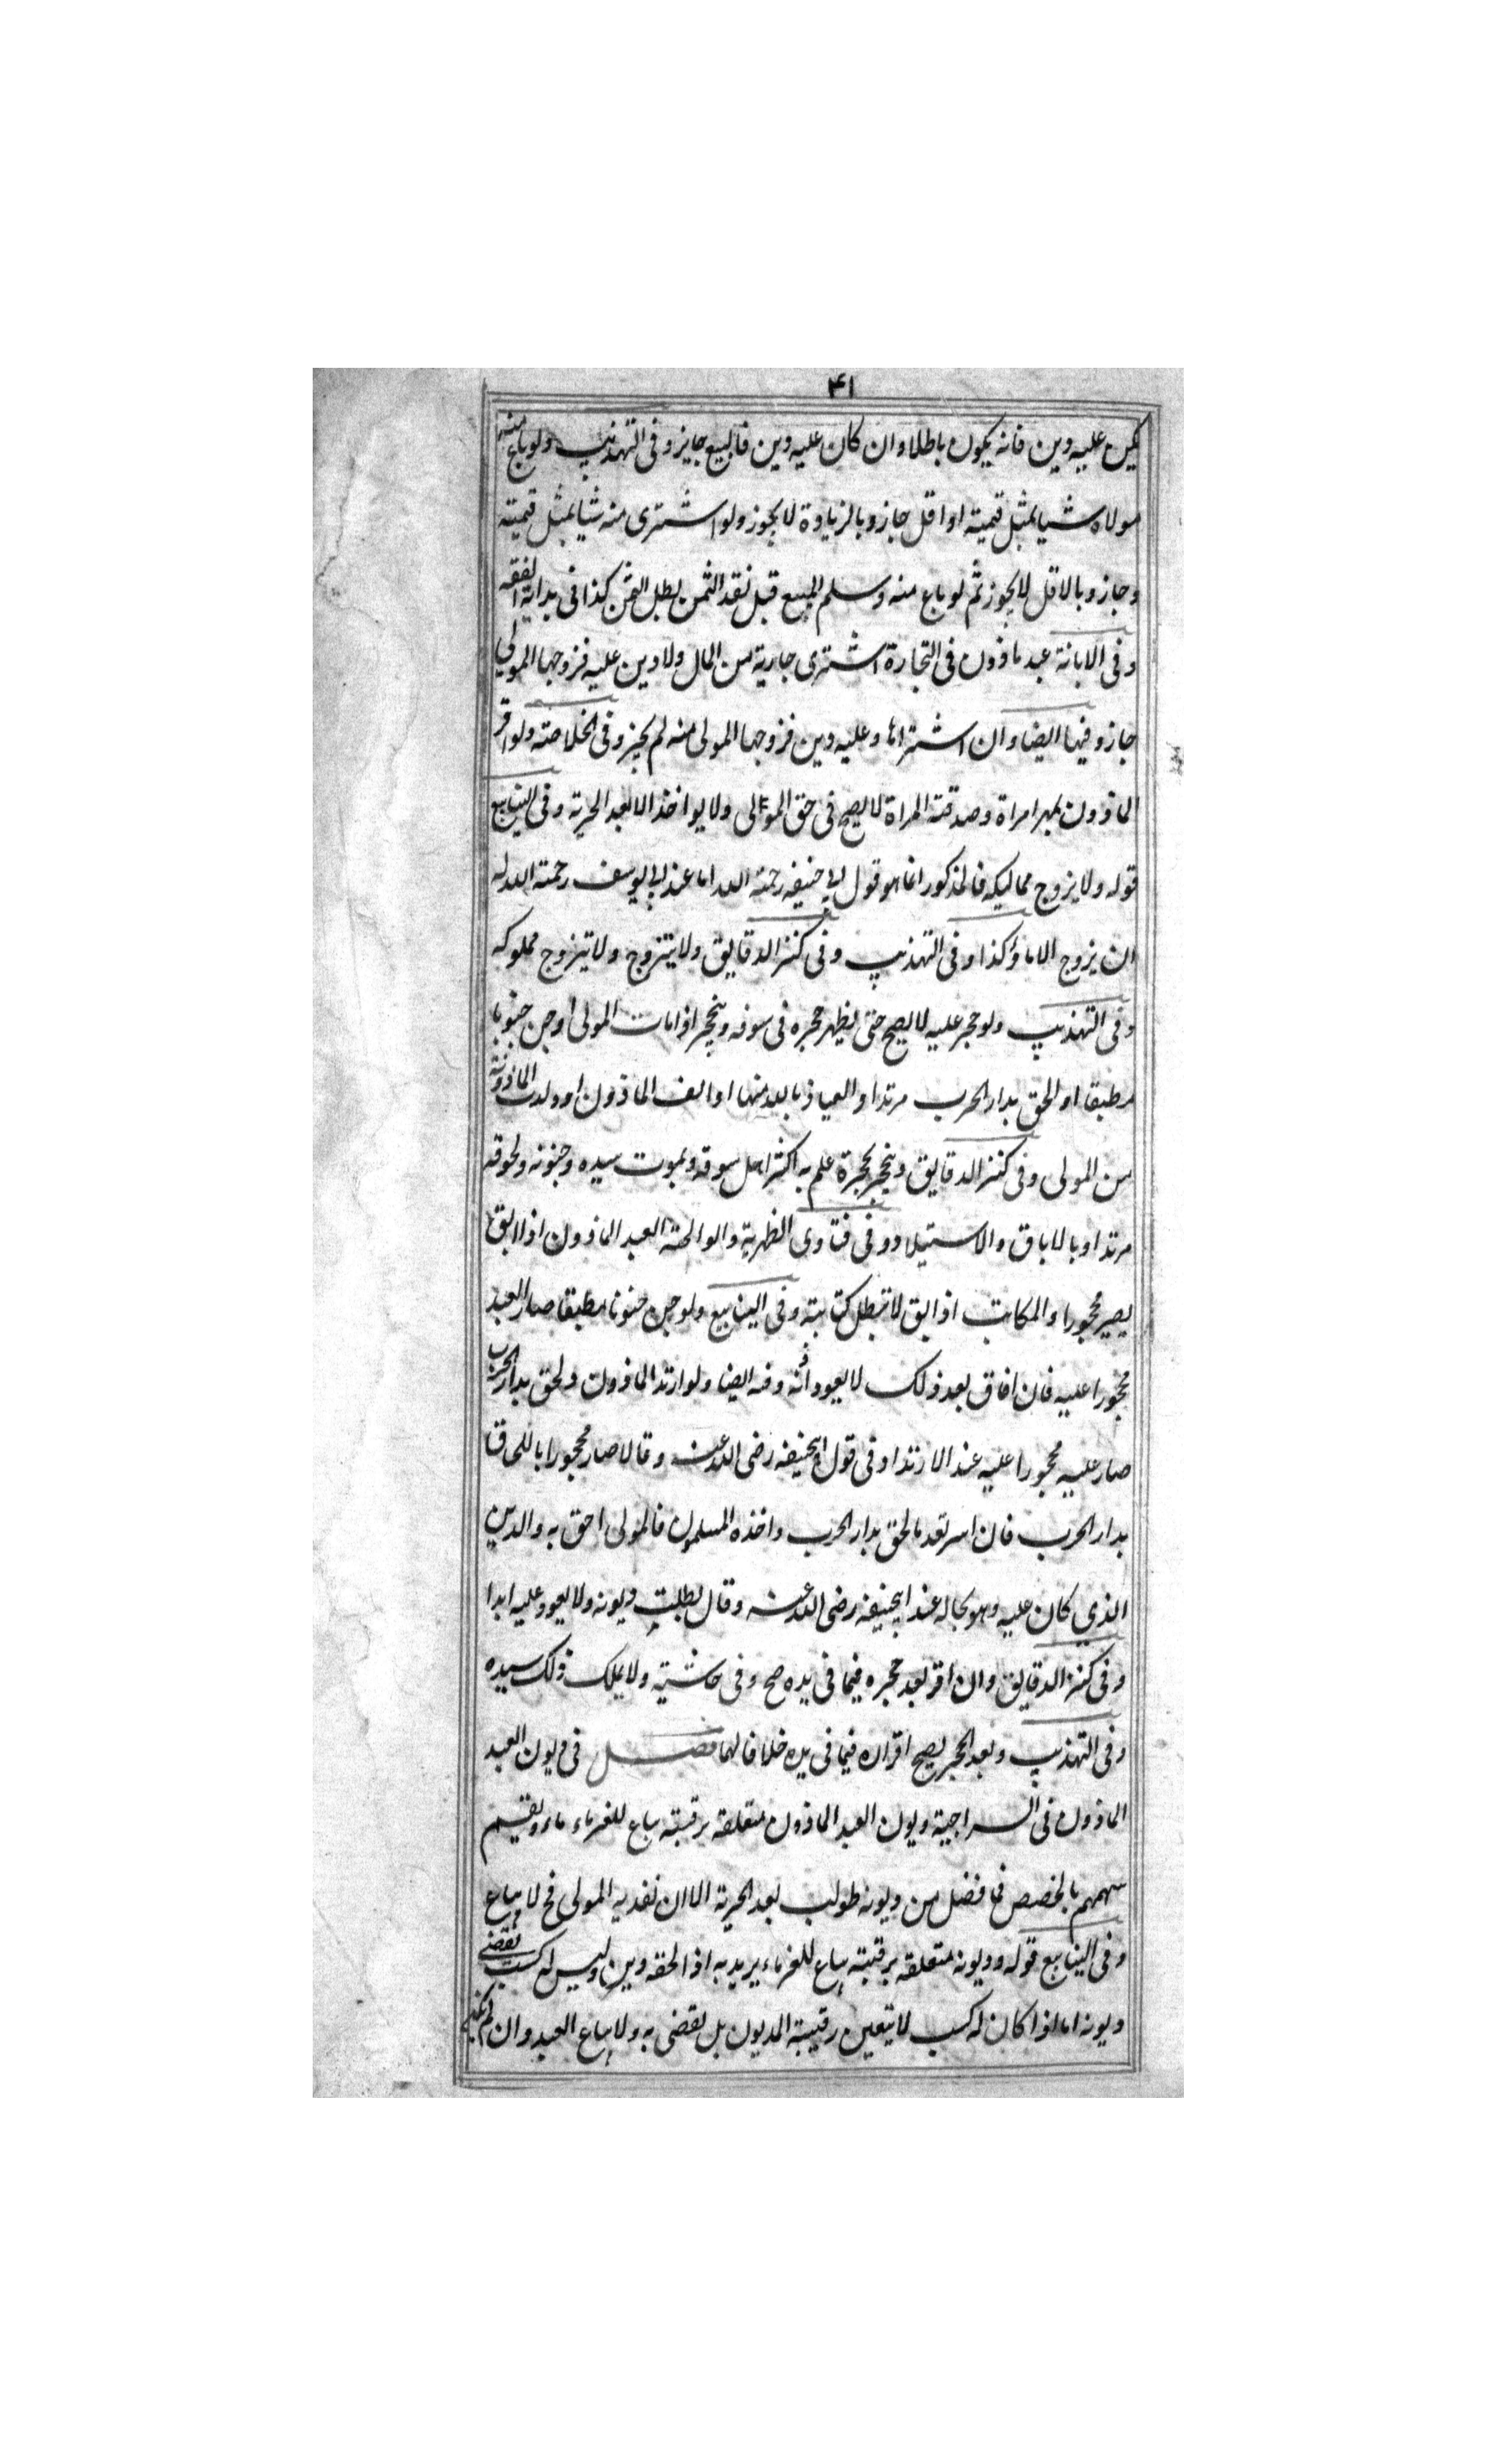 ۴۱
يكن عليه دين فانه يكون باطلا وان كان عليه دين فالبيع جايز وفى التهذيب ولو باع منه
مولاه شيا بمثل قيمته او اقل جاز وبالزيادة لا يجوز ولو اشترى منه شيا بمثل قيمته
وجاز وبالاقل لا يجوز ثم لو باع منه وسلم المبيع قبل نقد الثمن بطل الثمن كذا فى بداية الفقه
وفى الابانة عبد ماذون فى التجارة اشترى جارية من المال ولا دين عليه فزوجها المولى
جاز وفيها ايضا وان اشتراها وعليه دين فزوجها المولى منه لم يجز وفى الخلاصة ولو اقر
الماذون بمهر امراة وصدقته المراة لا يصح فى حق المولى ولا يواخذ الا بعد الحرية وفى الينابيع
قوله ولا يزوج مماليكه فالمذكور انما هو قول ابى حنيفه رحمة الله اما عند ابى يوسف رحمة الله له
ان يزوج الاماء كذا وفى التهذيب وفى كنز الدقايق ولا يتزوج ولا يزوج مملوكه
وفى التهذيب ولو حجر عليه لا يصح حتى يظهر حجره فى سوقه وينحجر اذا مات المولى او جن جنونا
مطبقا او الحق بدار الحرب مرتدا والعياذ بالله منها او ابق الماذون او ولدت الماذونة
من المولى وفى كنز الدقايق وينحجر بحجرة علم به اكثر اهل سوقه وبموت سيده وجنونه ولحوقه
مرتدا وبالاباق والاستيلاد وفى فتاوى الظهرية والوالجية العبد الماذون اذا ابق
يصير محجورا والمكاتب اذا ابق لا تبطل كتابته وفى الينابيع ولو جن جنونا مطبقا صار العبد
محجورا عليه فان افاق بعد ذلك لا يعود اذنه وفيه ايضا ولو ارتد الماذون ولحق بدار الحرب
صار عليه محجورا عليه عند الارتداد فى قول ابيحنيفه رضى الله عنه وقالا صار محجورا باللحاق
بدار الحرب فان اسر بعد ما لحق بدار الحرب واخذه المسلمون فالمولى احق به والدين
الذي كان عليه وهو بحاله عند ابيحنيفه رضى الله عنه وقال بطلت ديونه ولا يعود عليه ابدا
وفى كنز الدقايق وان اقر بعد حجره فيما فى يده صح وفى حاشيته ولا يملك ذلك سيده
وفى التهذيب وبعد الحجر يصح اقراره فيما فى يده خلافا لهما فصل فى ديون العبد
الماذون فى السراجية ديون العبد الماذون متعلقه برقبته يباع للغرماء ويقسم
سهمهم بالحصص فما فضل من ديونه طولب بعد الحرية الا ان نفديه المولى فح لا يباع
وفى الينابيع قوله وديونه متعلقه برقبته يباع للغرماء يريد به اذا لحقه دين وليس له كسب يقضى
ديونه اما اذا كان له كسب لا يتعين رقبة المديون بل يقضى به ولا يباع العبد وان لم